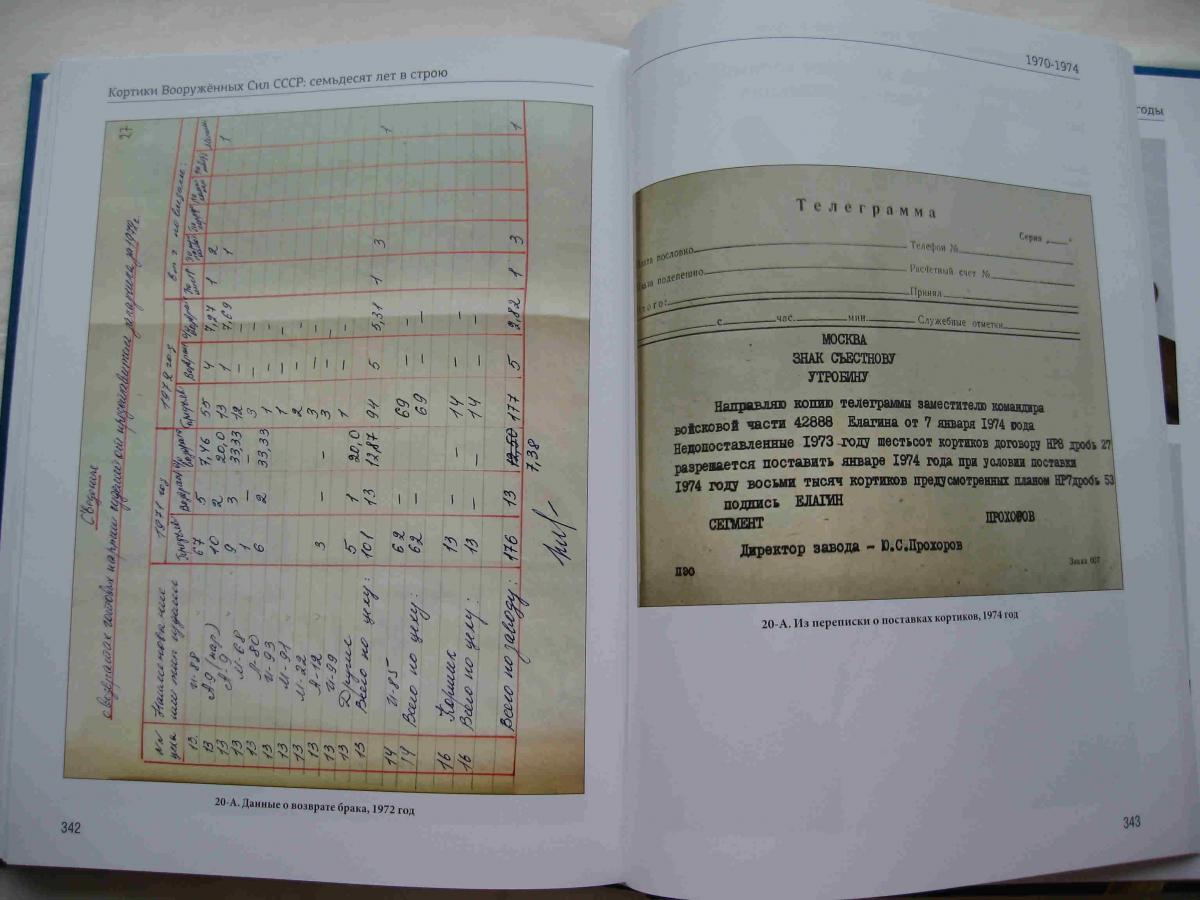 Кортики Вооружённых Сил СССР: семьдесят лет в строю
27
Сведение
о возвратах готовых партий изделий от представителя заказчика за 1972 г.
1971 год
1972 год
Возврат %
Возврат
13 И-88 67 5 7,46 55 4 7,27 1 2
13 А9 (пар) 10 2 20,0 13 1 7,69 1 1
13 А-9 9 3 33,33 12 – –
13 М-68 1 – – 3 – –
13 А-80 6 2 33,33 1 – –
13 И-93 1 – –
13 М-91 2 – –
13 М-22 3 – –
13 А-12 3 – – 3 – –
13 И-99 1 – –
13 Другие 5 1 20,0
13 Всего по цеху: 101 13 12,87 94 5 5,31 1 3 1
14 И-85 62 – – 69 – –
14 Всего по цеху: 62 – – 69 – –
16 Кортик 13 – – 14 – –
16 Всего по цеху: 13 – – 14 – –
Всего по заводу: 176 13 12,50 177 5 2,82 1 3 1
7,38
20-А. Данные о возврате брака, 1972 год
342
1970-1974
Телеграмма
Серия
Плата пословно Телефон №
Плата поделешно Расчетный счет №
Итого: Принял
с час. мин. Служебные отметки
МОСКВА
ЗНАК СЪЕСТНОВУ
УТРОБИНУ
Направляю копию телеграммы заместителю командира
войсковой части 42888 Елагина от 7 января 1974 года
Недопоставленные 1973 году шестьсот кортиков договору НР8 дробь 27
разрешается поставить январе 1974 года при условии поставки
1974 году восьми тысяч кортиков предусмотренных планом НР7дробь 53
подпись ЕЛАГИН
СЕГМЕНТ ПРОХОРОВ
Директор завода – Ю.С.Прохоров
ПЭО
Заказ 607
20-А. Из переписки о поставках кортиков, 1974 год
343
годы